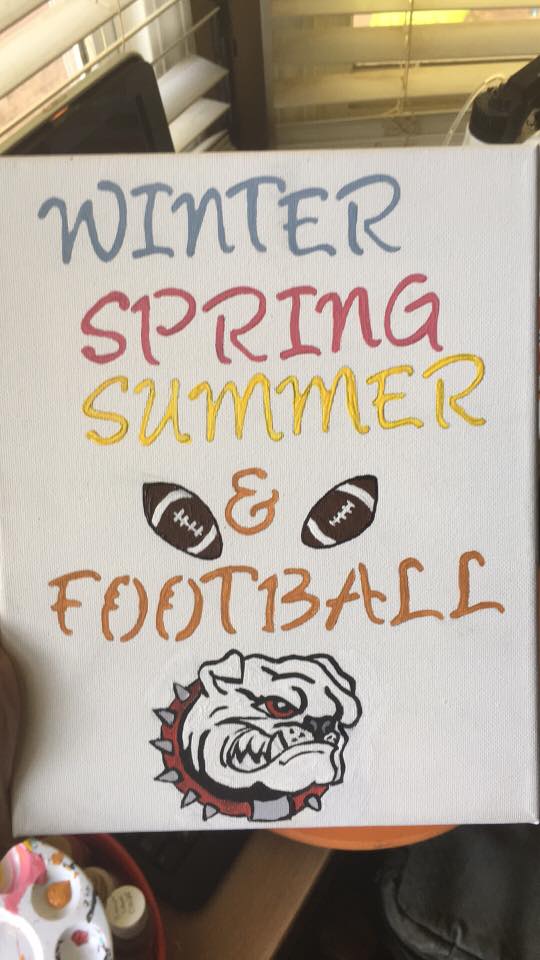 WINTER
SPRING
SUMMER
&
FOOTBALL